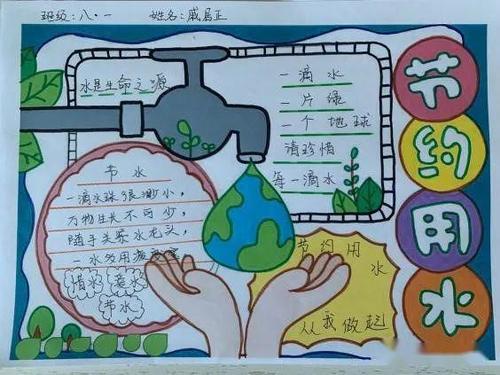 班级:八·一 姓名:戚居正
水是生命之源
一滴水
一片绿
一个地球
请珍惜
每一滴水
节约用水
节水
一滴水珠很渺小,
万物生长不可少,
随手关紧水龙头,
一水多用
惜水 爱水
节水
节约用
水
从我做起